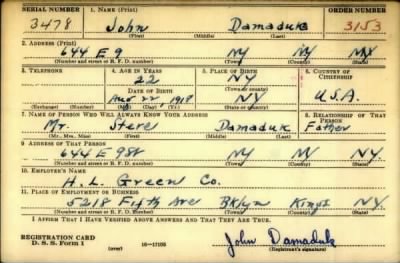 SERIAL NUMBER 1. NAME (Print) ORDER NUMBER
3478 John Damaduk 3153
(First) (Middle) (Last)
2. ADDRESS (Print)
644 E 9 NY NY
(Number and street or R. F. D. number) (Town) (County) (State)
3. TELEPHONE 4. AGE IN YEARS 5. PLACE OF BIRTH 6. COUNTRY OF CITIZENSHIP
22 NY
DATE OF BIRTH (Town or county)
Aug 22, 1918 NY U.S.A.
(Exchange) (Number) (Mo.) (Day) (Yr.) (State or country)
7. NAME OF PERSON WHO WILL ALWAYS KNOW YOUR ADDRESS 8. RELATIONSHIP OF THAT PERSON
Mr. Damaduk Father
(Mr., Mrs., Miss) (First) (Middle) (Last)
9. ADDRESS OF THAT PERSON
644 E 9 St NY NY
(Number and street or R. F. D. number) (Town) (County) (State)
10. EMPLOYER'S NAME
H. L. Green Co.
11. PLACE OF EMPLOYMENT OR BUSINESS
5218 Fifth Ave Bklyn Kings NY.
(Number and street or R. F. D. number) (Town) (County) (State)
I AFFIRM THAT I HAVE VERIFIED ABOVE ANSWERS AND THAT THEY ARE TRUE.
REGISTRATION CARD
D. S. S. Form 1 (over) 16—17105
John Damaduk
(Registrant's signature)